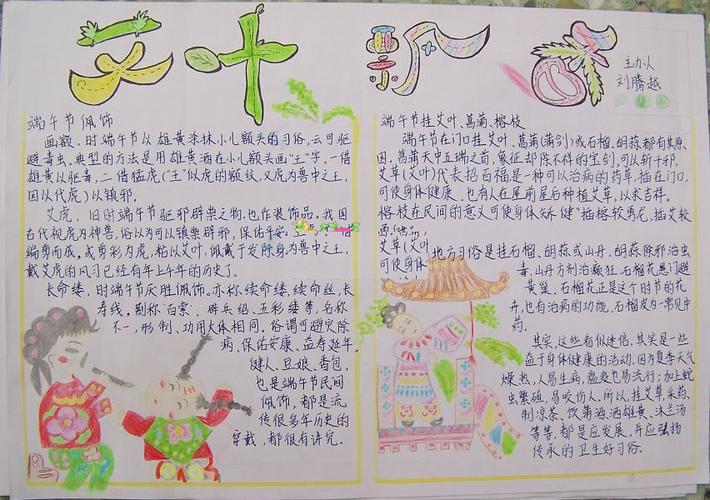 艾叶飘香
主办人
刘腾越
端午节佩饰
画额,时端午节以雄黄涂抹小儿额头的习俗,云可驱
避毒虫,典型的方法是用雄黄酒在小儿额头画"王"字,一借
雄黄以驱毒,二借猛虎("王"似虎的额纹,又虎为兽中之王,
因以代虎)以镇邪.
艾虎,旧时端午节驱邪辟祟之物,也作装饰品,我国
古代视虎为神兽,俗以为可以镇祟辟邪,保佑安
编剪而成,或剪彩为虎,粘以艾叶,佩戴于发际身为兽中之王,
戴艾虎的风习已经有年上午年的历史了.
长命缕,时端午节厌胜佩饰.亦称续命缕,续命丝,长
寿线.别称"百索",辟兵绍,五彩缕等,名称
不一,形制、功用大体相同,俗谓可避灾除
病、保佑安康、益寿延年.
健人、豆娘、香包,
也是端午节民间
佩饰,都是流
传很多年历史的
穿戴,都很有讲究.
端午节挂艾叶、菖蒲、榕枝
端午节在门口挂艾叶、菖蒲(蒲剑)或石榴、胡蒜,都有其原
因,菖蒲天中五端之首,象征却除不祥的宝剑,可以斩千邪.
艾草(艾叶)代表招百福是一种可以治病的药草,插在门口,
可使身体健康,也有人在屋前屋后种植艾草,以求吉祥。
榕枝在民间的意义可使身体矫健"插榕较勇龙,插艾较
西(
艾草(艾叶
可使身体
地方习俗是挂石榴、胡蒜或山丹,胡蒜除邪治虫
毒,山丹方剂治癫狂,石榴花悬门避
黄巢,石榴花正是这个时节的花
卉,也有治病的功能,石榴皮为常见中
药。
其实,这些看似迷信,其实是一些
益于身体健康的活动,因为夏季天气
燥热,人易生病,瘟疫也易流行;加上蛇
虫繁殖,易咬伤人,所以,挂艾草采药、
制凉茶、饮菖蒲酒,洒雄黄、沐兰汤
等等,都是应发展,并应弘扬
传承的卫生好习俗.